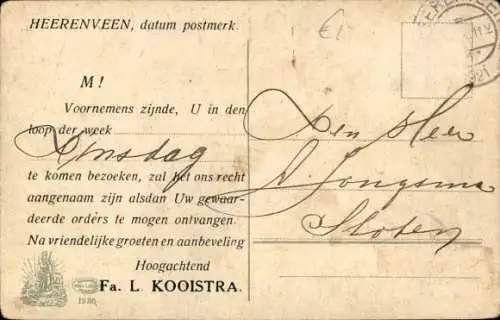 HEERENVEEN, datum postmerk.
€1-
M!
Voornemens zijnde, U in den
loop der week
Dinsdag
te komen bezoeken, zal het ons recht
aangenaam zijn alsdan Uw gewaar-
deerde orders te mogen ontvangen.
Na vriendelijke groeten en aanbeveling
Hoogachtend
Fa. L. KOOISTRA.
Den Heer
A. Jongsma
Sloten